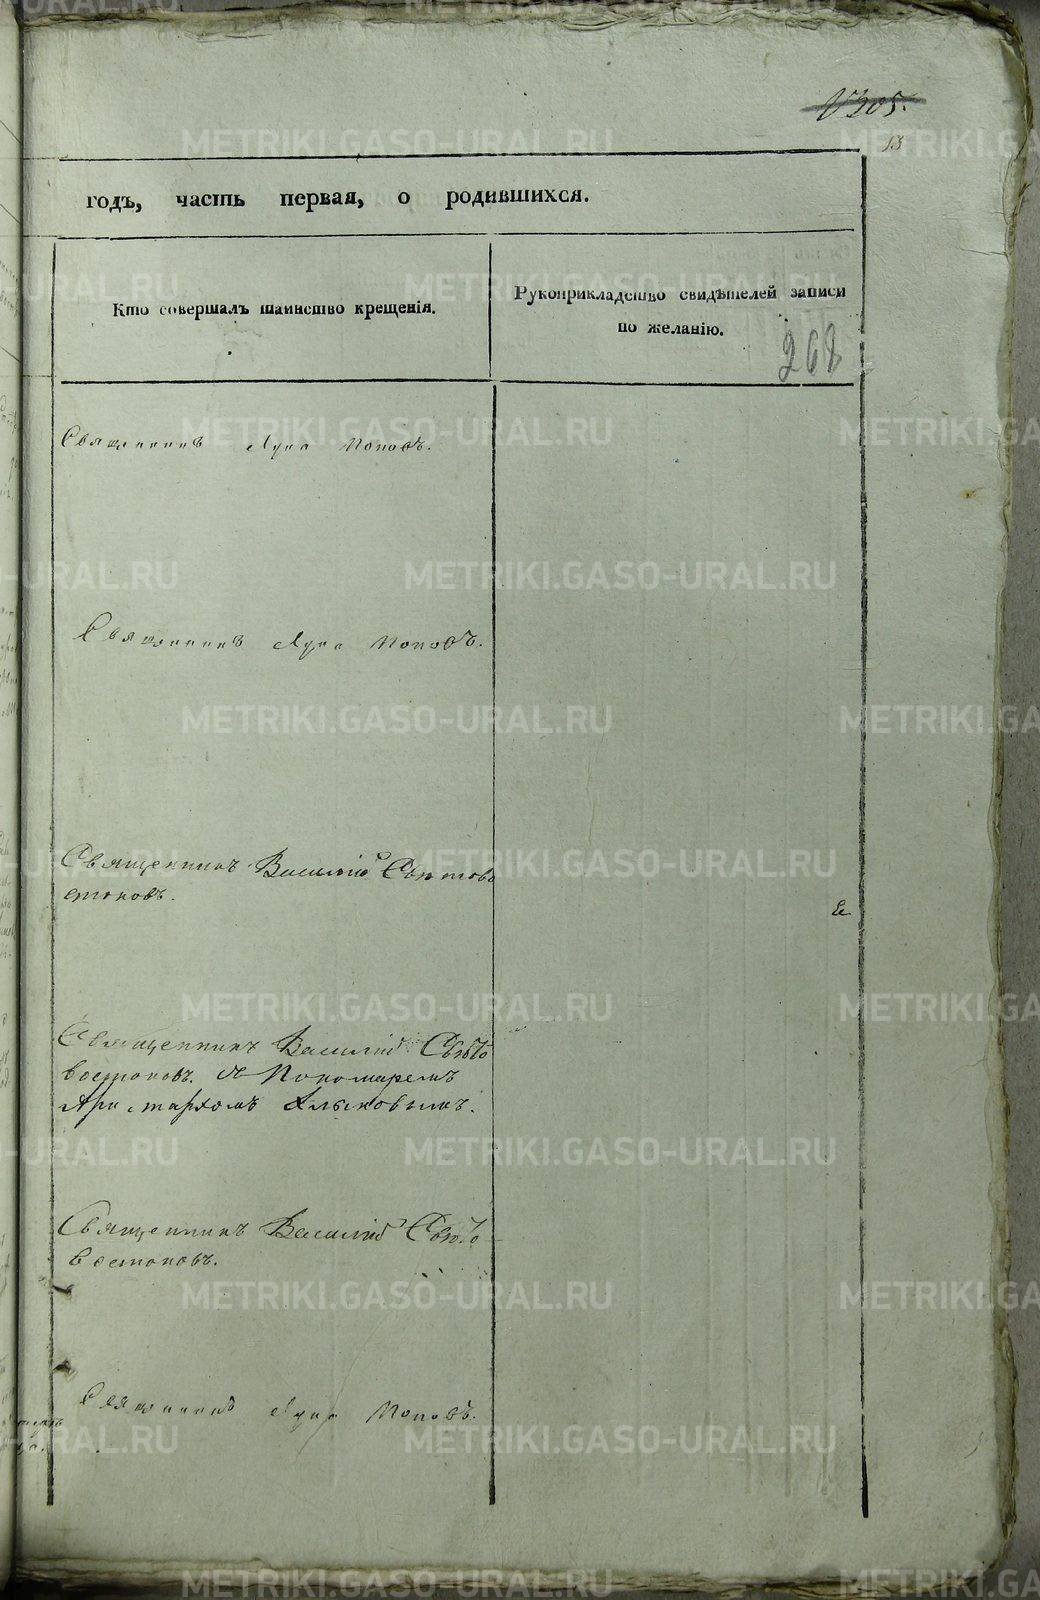 305.
13
годъ, часть первая, о родившихся.
Кто совершалъ таинство крещенія.
Рукоприкладство свидѣтелей записи
по желанію.
268
Священникъ Лука Поповъ.
Священникъ Лука Поповъ.
Священникъ Василій Свѣтово
стоковъ.
Священникъ Василій Свѣто
востоковъ. съ Пономаремъ
Аристархомъ
Священникъ Василій Свѣто
востоковъ.
Священникъ Лука Поповъ.
METRIKI.GASO-URAL.RU